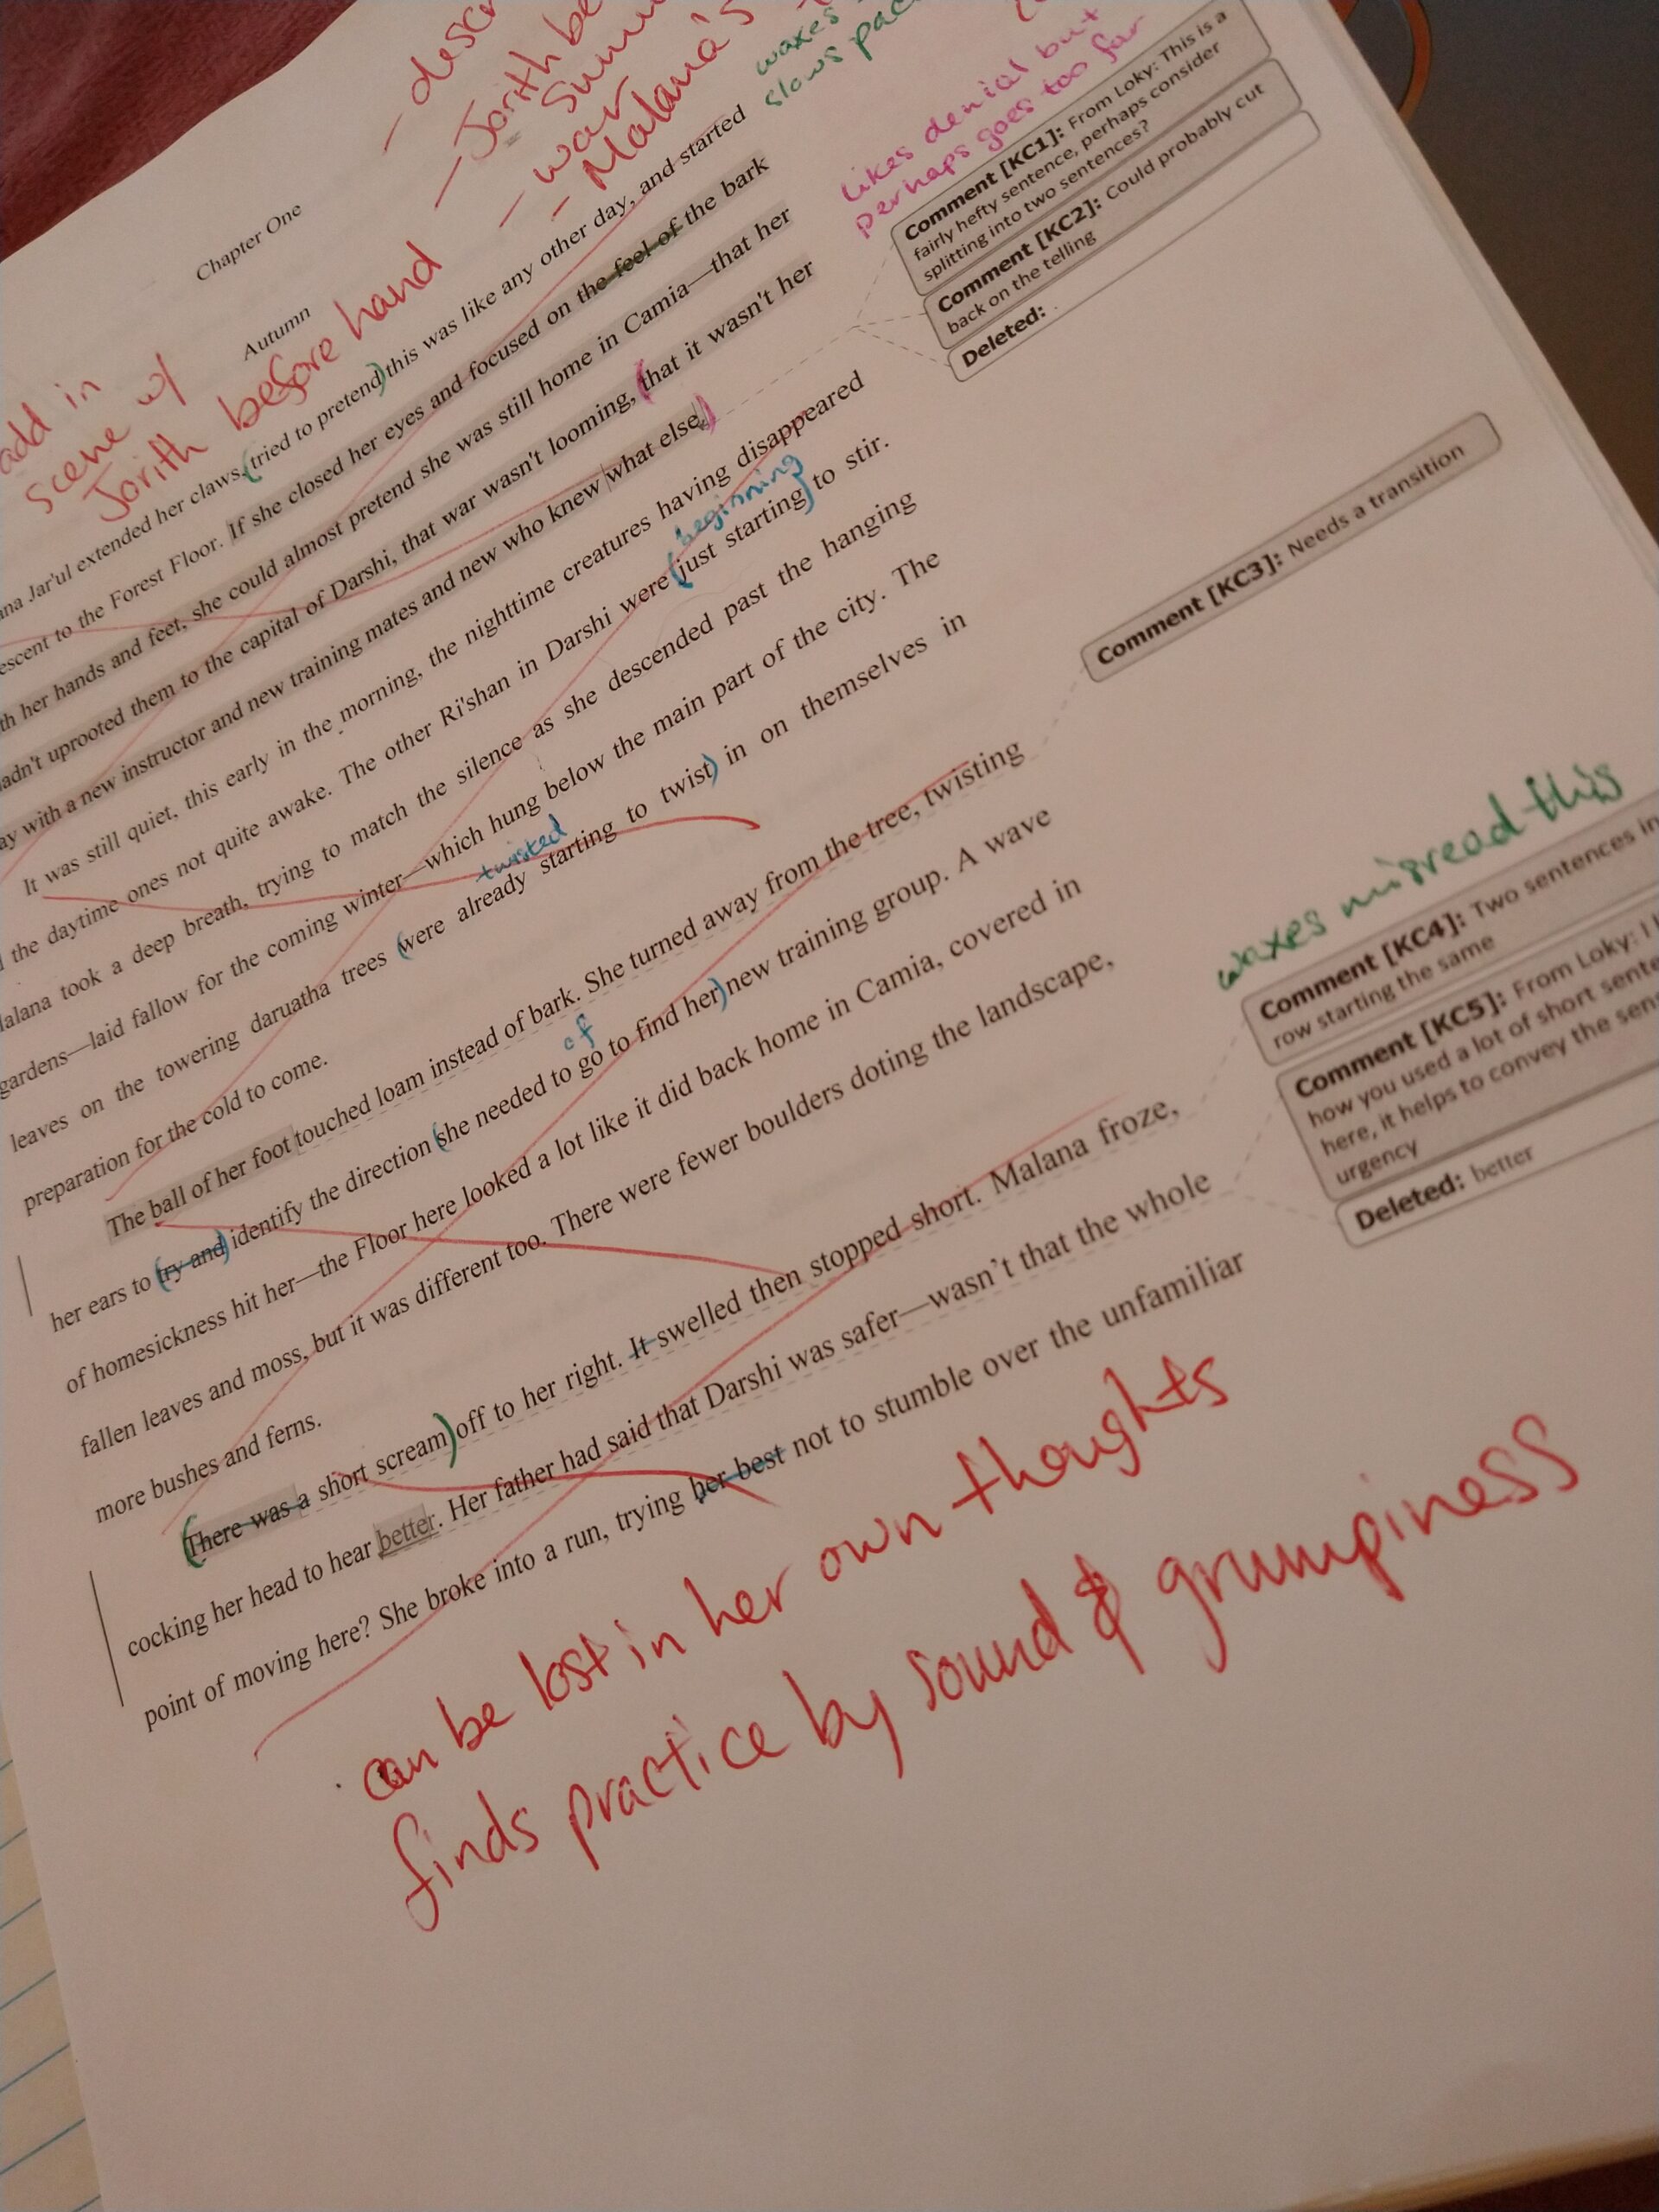 - descr
- Jorith be
- war
- Malana's
waxes
slows pac
likes denial but
perhaps goes too far
add in
scene w/
Jorith before hand
Chapter One
Autumn
ana Jar'ul extended her claws, tried to pretend this was like any other day, and started
escent to the Forest Floor. If she closed her eyes and focused on the feel of the bark
th her hands and feet, she could almost pretend she was still home in Camia—that her
adn't uprooted them to the capital of Darshi, that war wasn't looming, that it wasn't her
ay with a new instructor and new training mates and new who knew what else.
It was still quiet, this early in the morning, the nighttime creatures having disappeared
the daytime ones not quite awake. The other Ri'shan in Darshi were just starting to stir.
beginning
alana took a deep breath, trying to match the silence as she descended past the hanging
gardens—laid fallow for the coming winter—which hung below the main part of the city. The
twisted
leaves on the towering daruatha trees were already starting to twist in on themselves in
preparation for the cold to come.
The ball of her foot touched loam instead of bark. She turned away from the tree, twisting
of
her ears to try and identify the direction she needed to go to find her new training group. A wave
of homesickness hit her—the Floor here looked a lot like it did back home in Camia, covered in
fallen leaves and moss, but it was different too. There were fewer boulders doting the landscape,
more bushes and ferns.
There was a short scream off to her right. It swelled then stopped short. Malana froze,
cocking her head to hear better. Her father had said that Darshi was safer—wasn't that the whole
point of moving here? She broke into a run, trying her best not to stumble over the unfamiliar
can be lost in her own thoughts
finds practice by sound & grumpiness
Comment [KC1]: From Loky: This is a
fairly hefty sentence, perhaps consider
splitting into two sentences?
Comment [KC2]: Could probably cut
back on the telling
Deleted:
Comment [KC3]: Needs a transition
waxes misread this
Comment [KC4]: Two sentences in
row starting the same
Comment [KC5]: From Loky: I
how you used a lot of short sente
here, it helps to convey the sens
urgency
Deleted: better